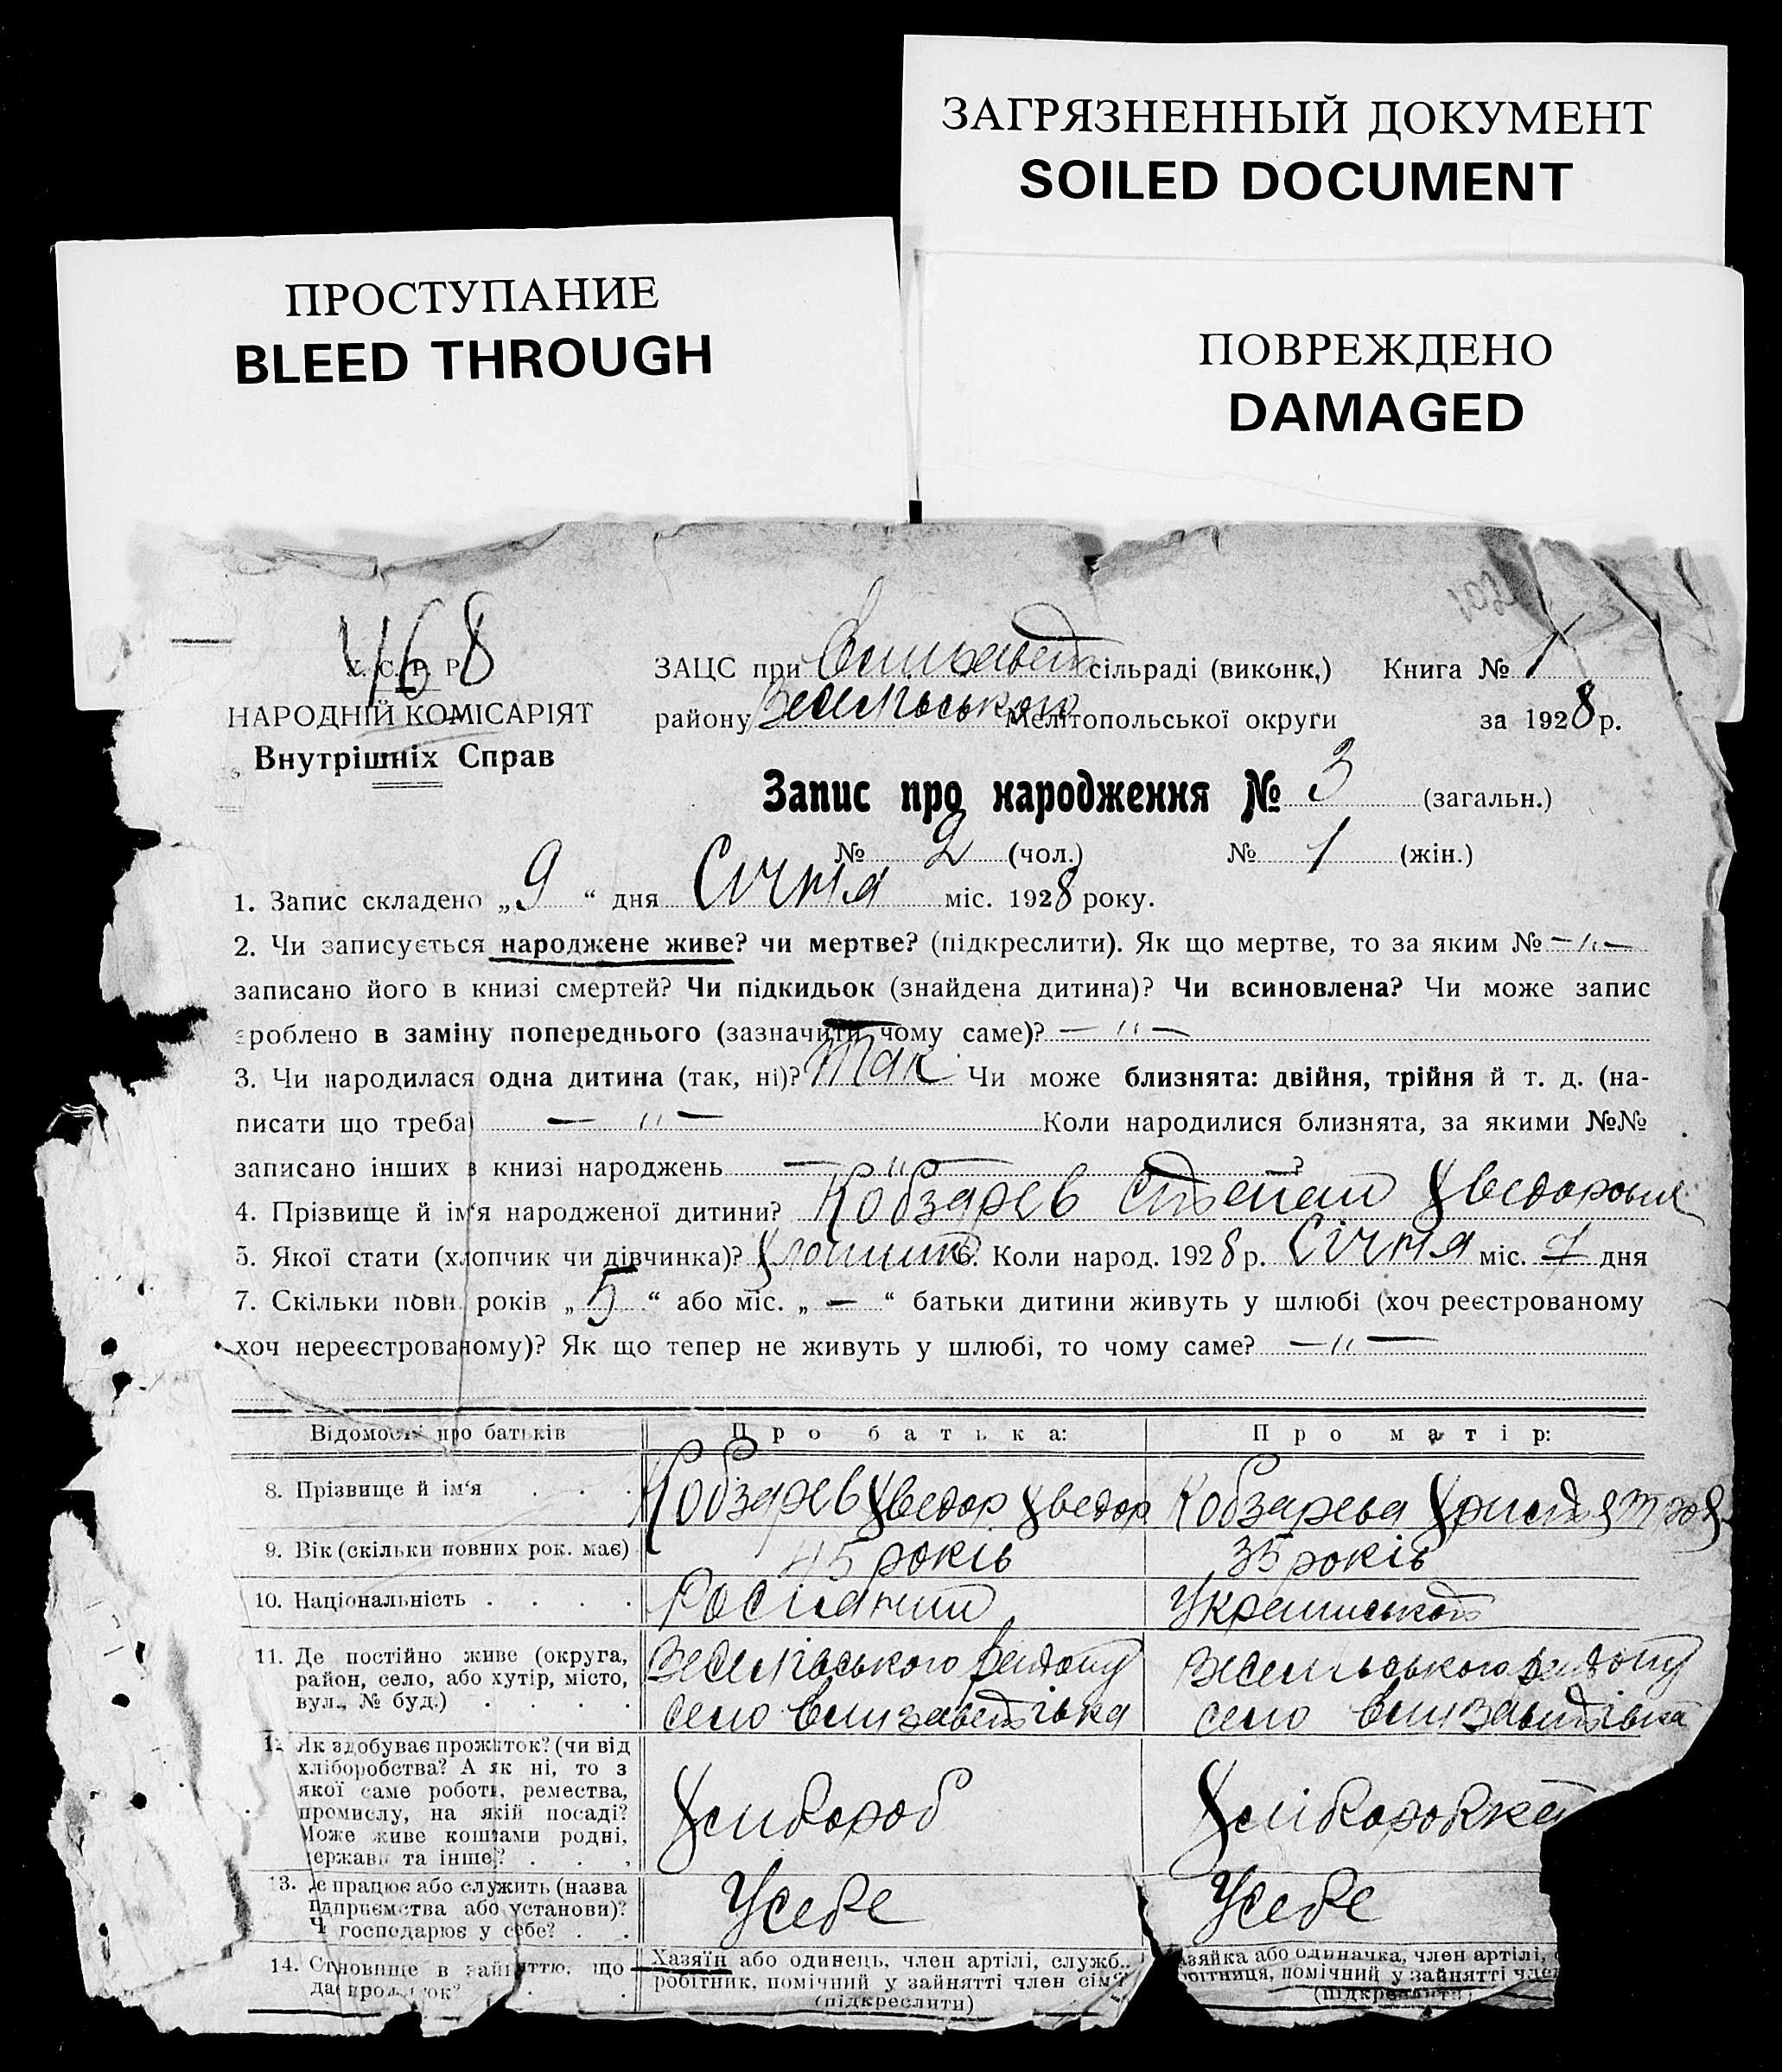 ЗАГРЯЗНЕННЫЙ ДОКУМЕНТ
SOILED DOCUMENT
ПРОСТУПАНИЕ
BLEED THROUGH
ПОВРЕЖДЕНО
DAMAGED
468
ЗАЦС при сільраді (виконк.) Книга № 1
НАРОДНІЙ КОМІСАРІЯТ
району Мелітопольської округи за 1928 р.
Внутрішніх Справ
Запис про народження № 3 (загальн.)
№ 2 (чол.) № 1 (жін.)
1. Запис складено „9“ дня Січня міс. 1928 року.
2. Чи записується народжене живе? чи мертве? (підкреслити). Як що мертве, то за яким № –〃–
записано його в книзі смертей? Чи підкидьок (знайдена дитина)? Чи всиновлена? Чи може запис
зроблено в заміну попереднього (зазначити чому саме)? –〃–
3. Чи народилася одна дитина (так, ні)? Так Чи може близнята: двійня, трійня й т. д. (на-
писати що треба) –〃– Коли народилися близнята, за якими №№
записано інших в книзі народжень –〃– ?
4. Прізвище й ім‘я народженої дитини? Кобзарев Степан
5. Якої стати (хлопчик чи дівчинка)? 6. Коли народ. 1928 р. Січня міс. дня
7. Скільки повн. років „5“ або міс. „–“ батьки дитини живуть у шлюбі (хоч реєстрованому
хоч нереєстрованому)? Як що тепер не живуть у шлюбі, то чому саме? –〃–
Відомості про батьків Про батька: Про матір:
8. Прізвище й ім‘я . . . Кобзарев Хведор Хведор Кобзарева
9. Вік (скільки повних рок. має) 45 років 35 років
10. Національність . . . .
11. Де постійно живе (округа,
район, село, або хутір, місто,
вул., № буд.) . . . .
село село
12. Як здобуває прожиток? (чи від
хліборобства? А як ні, то з
якої саме роботи, ремества,
промислу, на якій посаді?
Може живе коштами родні,
держави та інше)? . . .
Хлибороб
13. Де працює або служить (назва
підприємства або установи)?
Чи господарює у себе? . .
Усебе Усебе
14. Становище в зайняттю, що
дає прожиток? . .
Хазяїн або одинець, член артілі, служб.,
робітник, помічний у зайнятті член сім‘ї
(підкреслити)
азяйка або одиначка, член артілі,
обітниця, помічний у зайнятті член
(підкреслити)